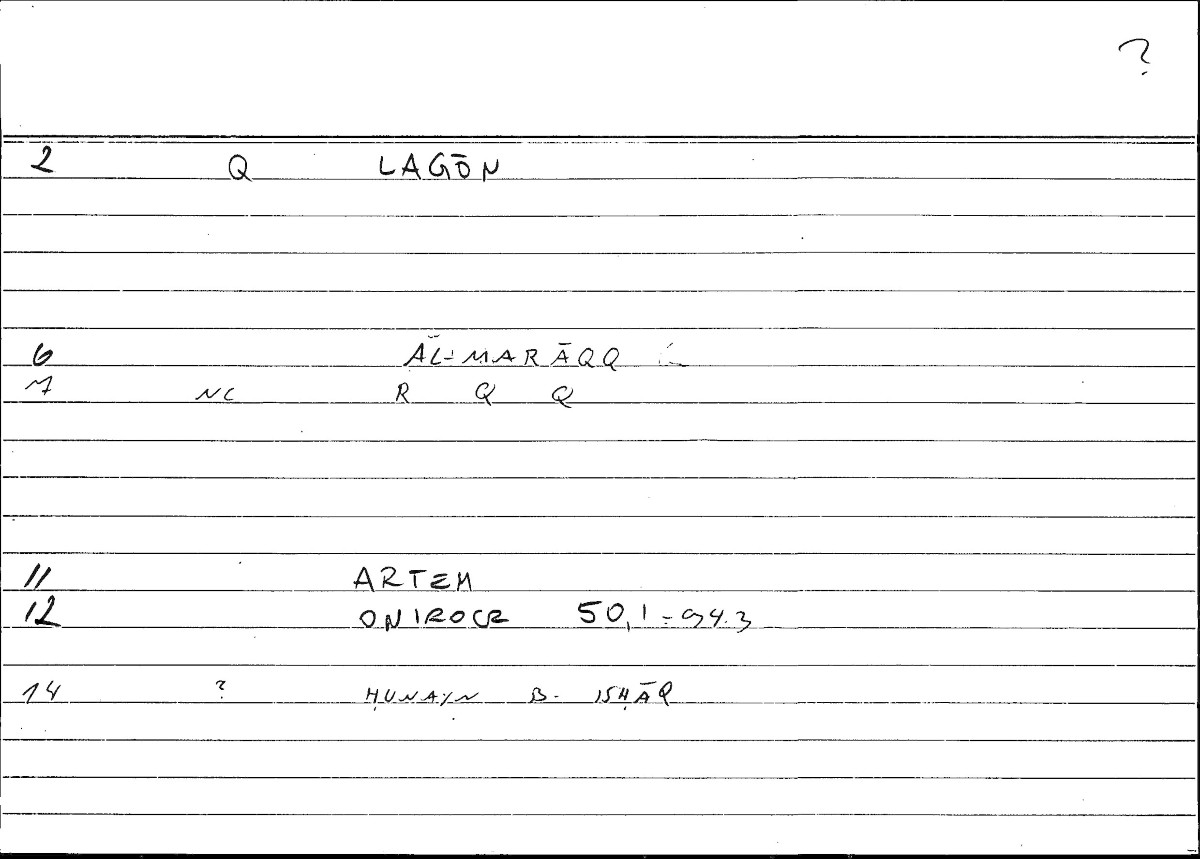 ?
2 Q LAGŌN
6 AL-MARĀQQ
7 NC R Q Q
11 ARTEM
12 ONIROCR 50,1 = 94.3
14 ? ḤUNAYN B. ISḤĀQ